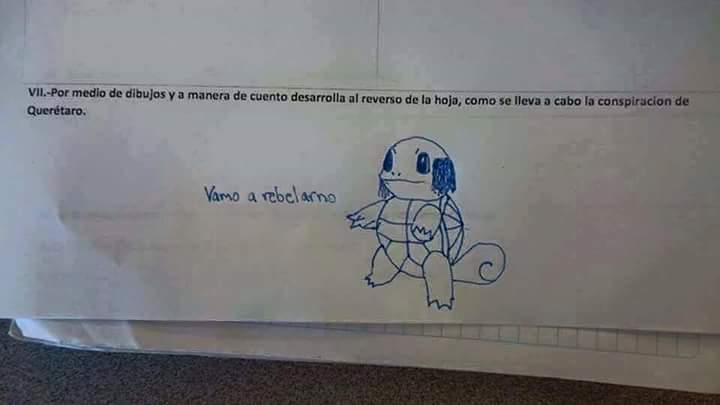 VII.-Por medio de dibujos y a manera de cuento desarrolla al reverso de la hoja, como se lleva a cabo la conspiracion de
Querétaro.
Vamo a rebelarno